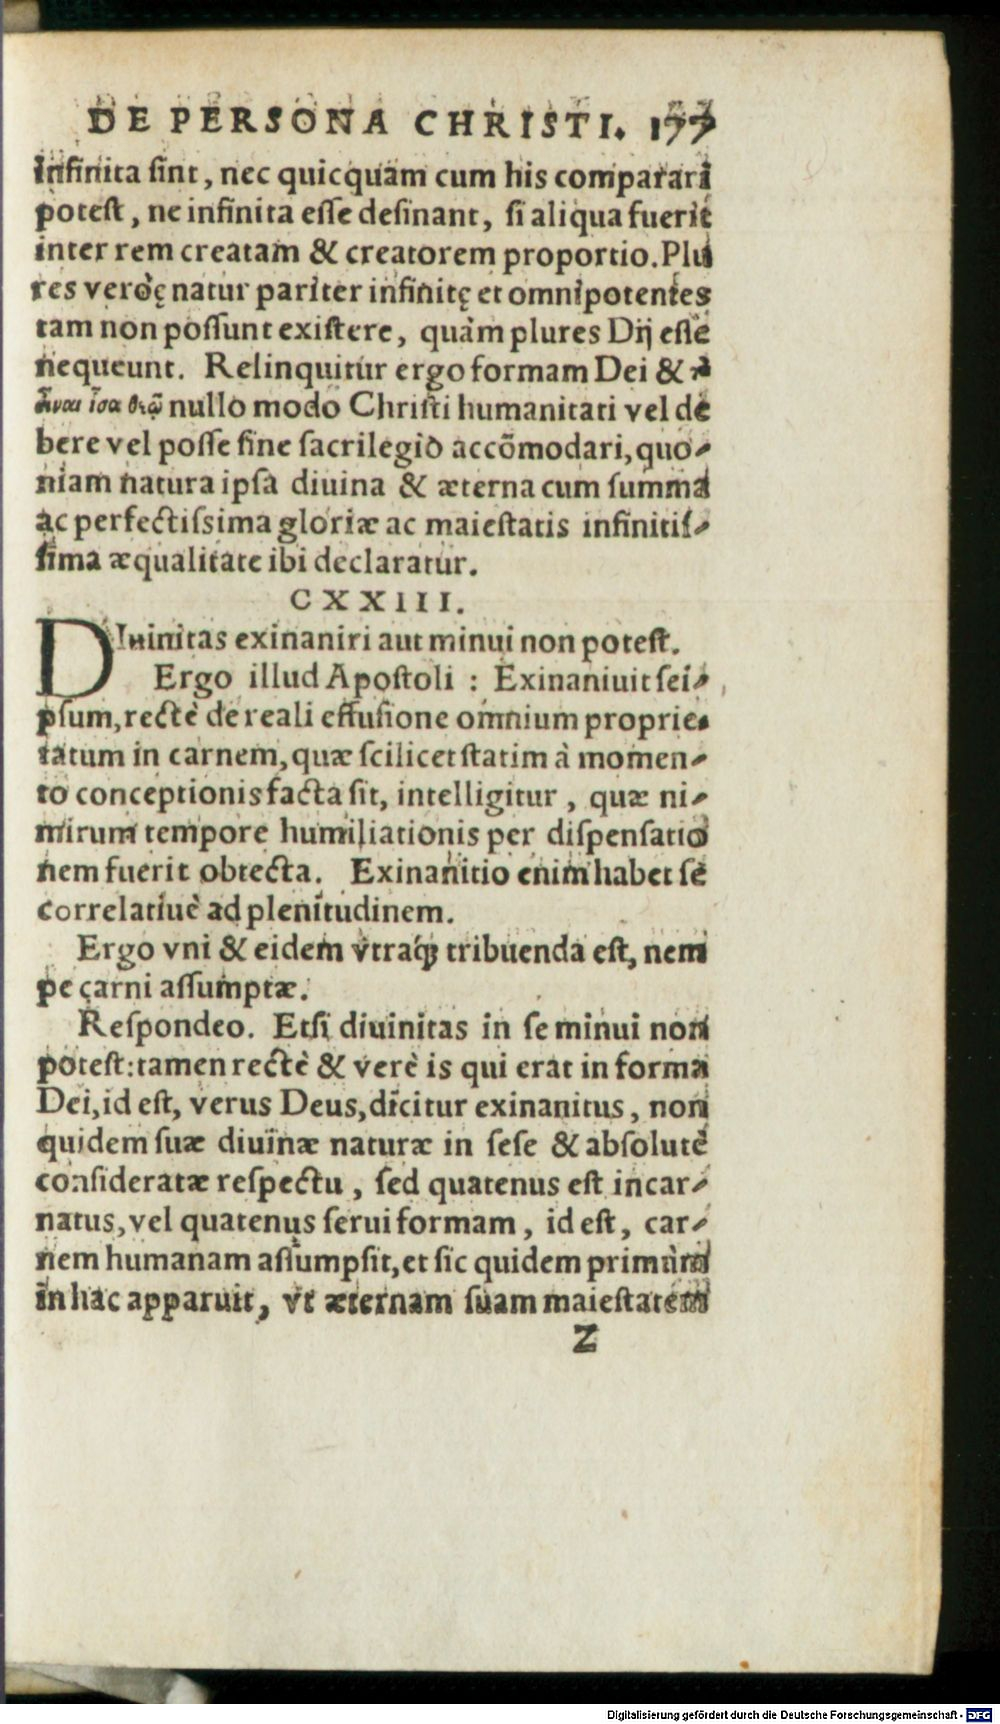 DE PERSONA CHRISTI. 177
infinita sint, nec quicquam cum his comparari
potest, ne infinita esse desinant, si aliqua fuerit
inter rem creatam & creatorem proportio. Plu
res verò ę natur pariter infinitę et omnipotentes
tam non possunt existere, quàm plures Dij esse
nequeunt. Relinquitur ergo formam Dei & τὸ
εἶναι ἶσα θεῷ nullo modo Christi humanitati vel de
bere vel posse sine sacrilegio accõmodari, quo-
niam natura ipsa diuina & æterna cum summa
ac perfectissima gloriæ ac maiestatis infinitis-
sima æqualitate ibi declaratur.
CXXIII.
DIuinitas exinaniri aut minui non potest.
Ergo illud Apostoli : Exinaniuit sei-
psum, rectè de reali effusione omnium proprie-
tatum in carnem, quæ scilicet statim à momen-
to conceptionis facta sit, intelligitur, quæ ni-
mirum tempore humiliationis per dispensatio
nem fuerit obtecta. Exinanitio enim habet se
correlatiuè ad plenitudinem.
Ergo vni & eidem vtraq; tribuenda est, nem
pe carni assumptæ.
Respondeo. Etsi diuinitas in se minui non
potest: tamen rectè & verè is qui erat in forma
Dei, id est, verus Deus, dicitur exinanitus, non
quidem suæ diuinæ naturæ in sese & absolutè
consideratæ respectu, sed quatenus est incar-
natus, vel quatenus serui formam, id est, car-
nem humanam assumpsit, et sic quidem primùm
in hac apparuit, vt æternam suam maiestatem
Z
Digitalisierung gefördert durch die Deutsche Forschungsgemeinschaft - DFG